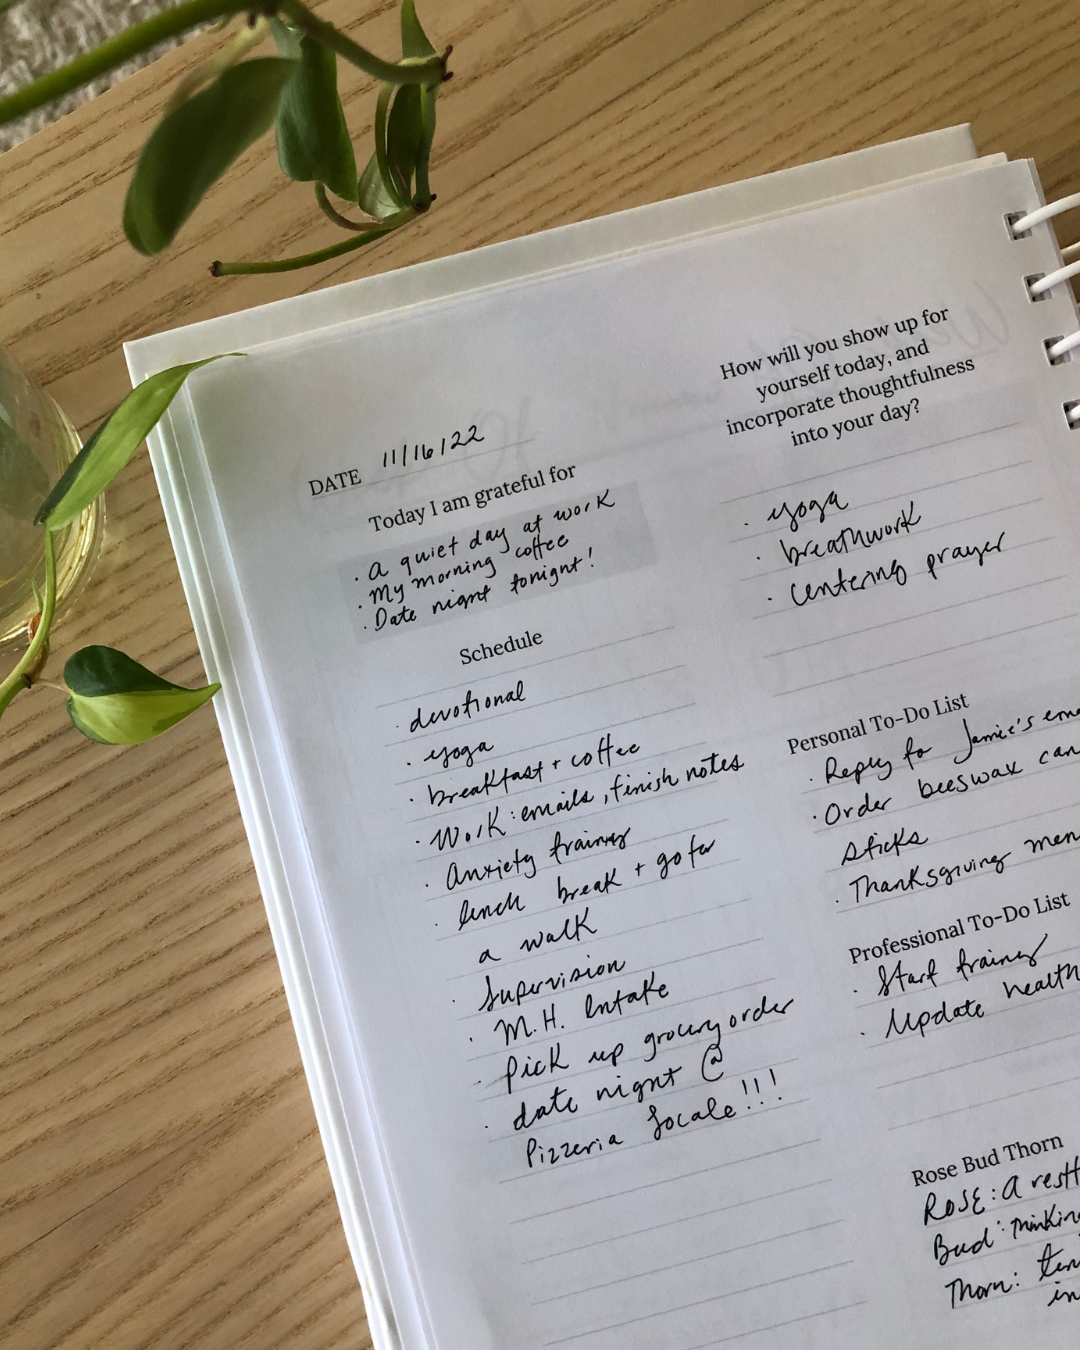 DATE 11/16/22
Today I am grateful for
· A quiet day at work
· My morning coffee
· Date night tonight!
Schedule
· devotional
· yoga
· breakfast + coffee
· Work: emails, finish notes
· Anxiety training
· lunch break + go for
a walk
· Supervision
· M.H. Intake
· Pick up grocery order
· date night @
Pizzeria Locale!!!
How will you show up for
yourself today, and
incorporate thoughtfulness
into your day?
· yoga
· breathwork
· Centering prayer
Personal To-Do List
· Reply to Jamie's
· Order beeswax
sticks
· Thanksgiving
Professional To-Do List
· Start training
· Update
Rose Bud Thorn
ROSE: A
Bud:
Thorn: